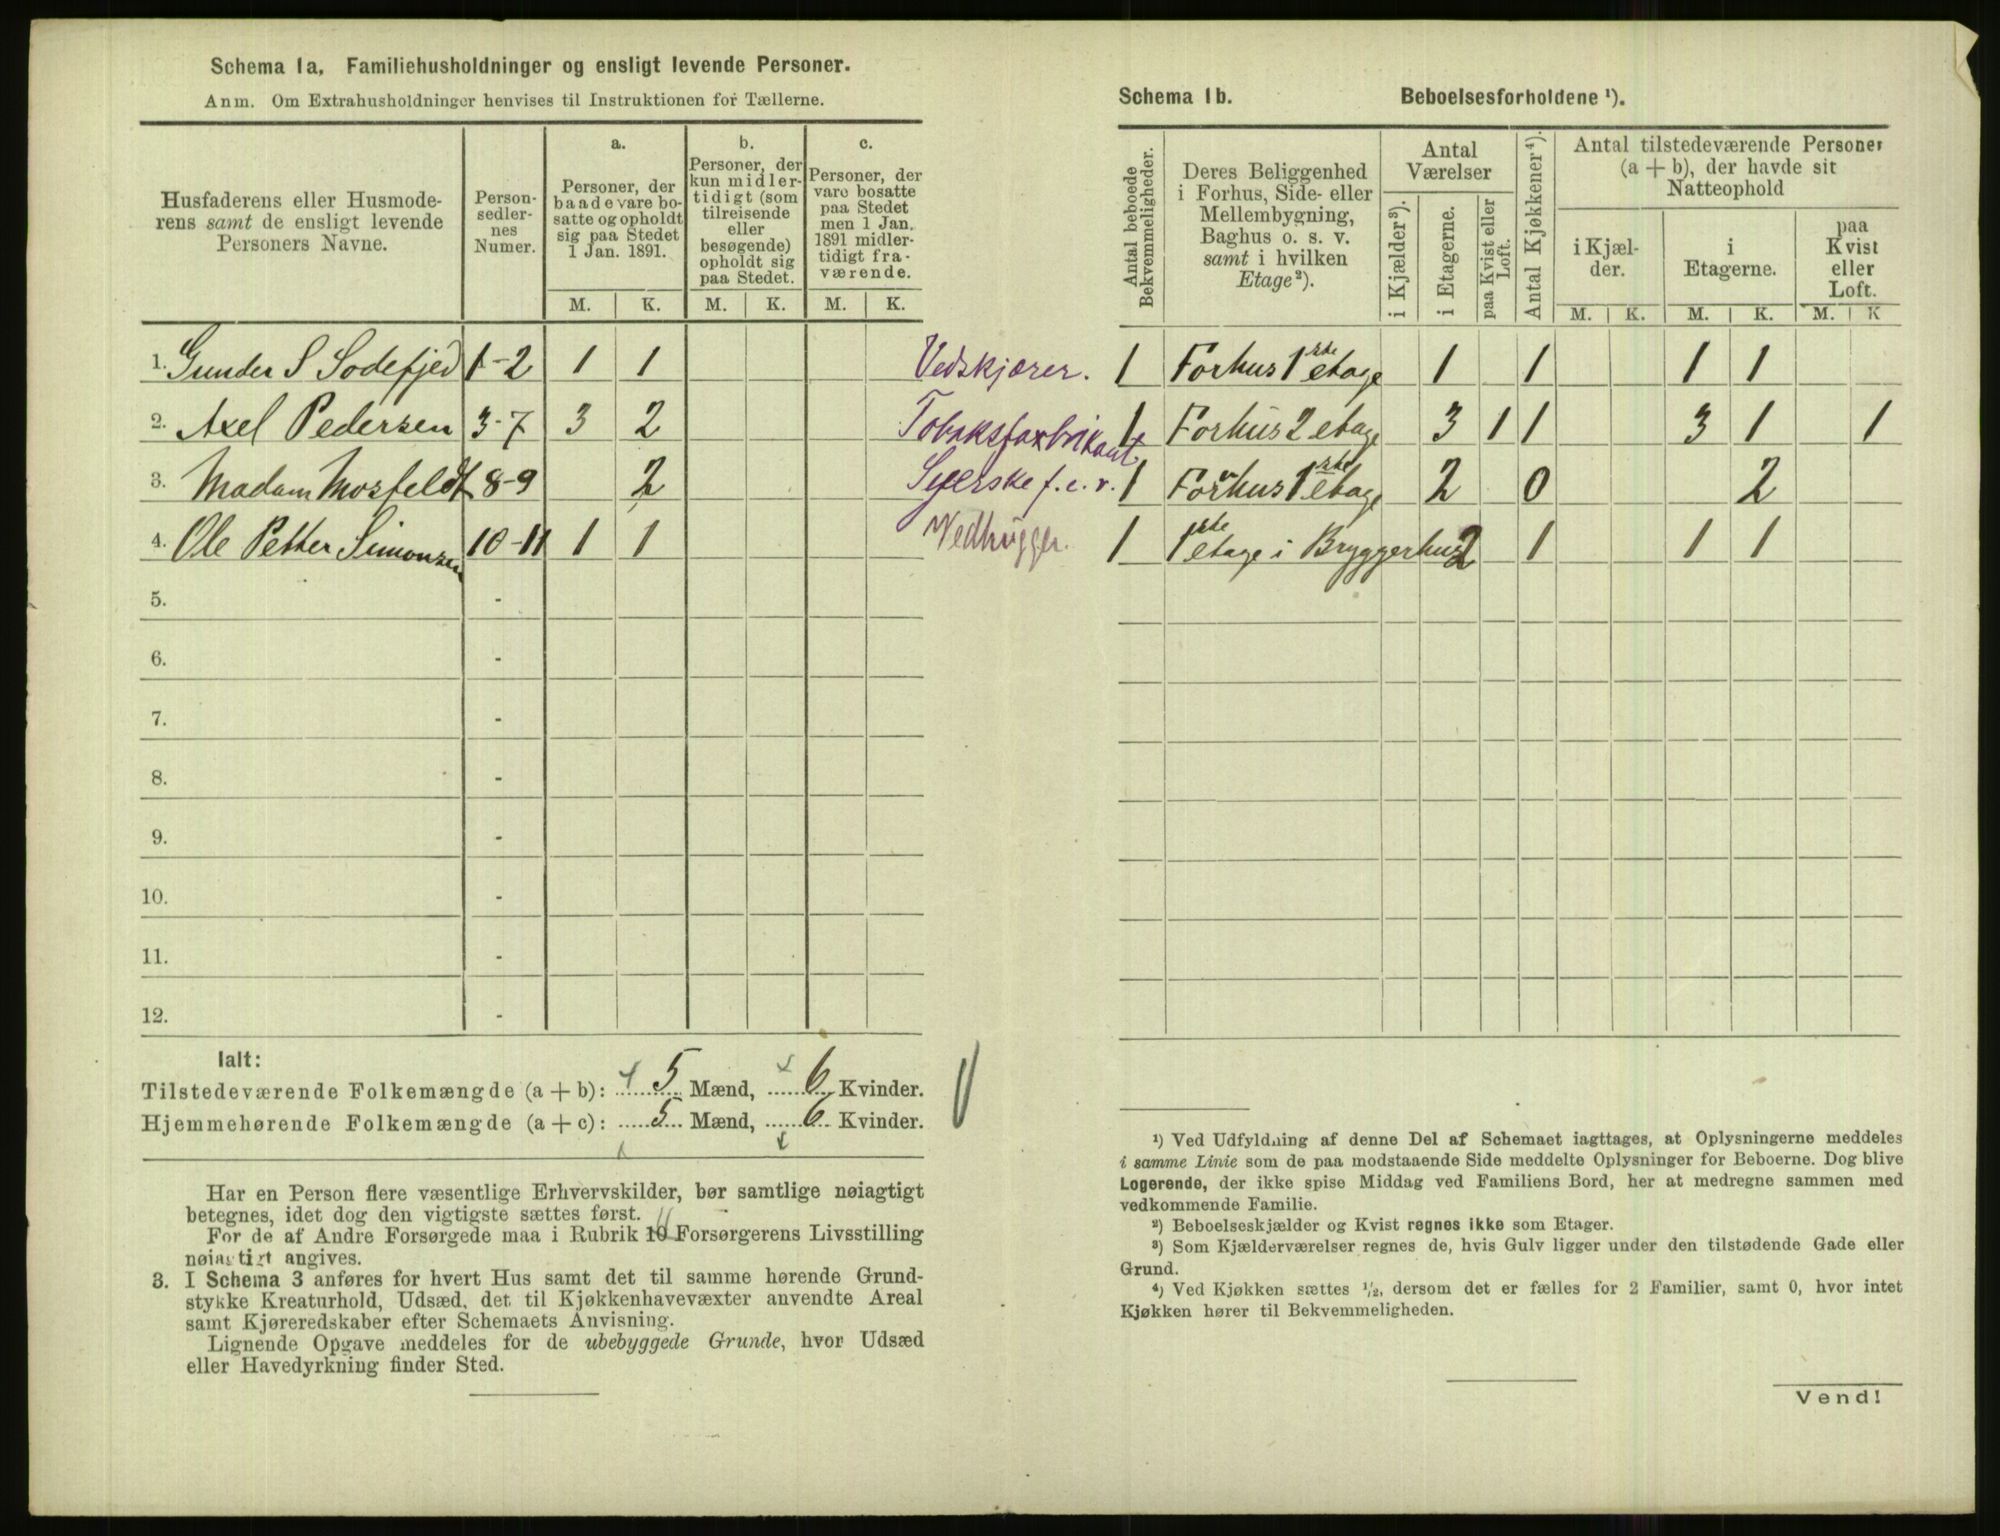 Schema 1a. Familiehusholdninger og ensligt levende Personer.
Anm. Om Extrahusholdninger henvises til Instruktionen for Tællerne.
Husfaderens eller Husmode-
rens samt de ensligt levende
Personers Navne.
Person-
sedler-
nes
Numer.
a.
Personer, der
baade vare bo-
satte og opholdt
sig paa Stedet
1 Jan. 1891.
b.
Personer, der
kun midler-
tidigt (som
tilreisende
eller
besøgende)
opholdt sig
paa Stedet.
c.
Personer, der
vare bosatte
paa Stedet
men 1 Jan.
1891 midler-
tidigt fra-
værende.
M. K. M. K. M. K.
1. Gunder S Sodefjed 1-2 1 1 Vedskjærer.
2. Axel Pedersen 3-7 3 2 Tobaksfabrikant
3. Madam Mosfeldt 8-9 2 Syerske f. e. r.
4. Ole Petter Simonsen 10-11 1 1 Vedhugger.
5. -
6. -
7. -
8. -
9. -
10. -
11. -
12. -
Ialt:
Tilstedeværende Folkemængde (a + b): 5 Mænd, 6 Kvinder.
Hjemmehørende Folkemængde (a + c): 5 Mænd, 6 Kvinder.
Har en Person flere væsentlige Erhvervskilder, bør samtlige nøiagtigt
betegnes, idet dog den vigtigste sættes først.
For de af Andre Forsørgede maa i Rubrik 10 11 Forsørgerens Livsstilling
nøiagtigt angives.
3. I Schema 3 anføres for hvert Hus samt det til samme hørende Grund-
stykke Kreaturhold, Udsæd, det til Kjøkkenhavevæxter anvendte Areal
samt Kjøreredskaber efter Schemaets Anvisning.
Lignende Opgave meddeles for de ubebyggede Grunde, hvor Udsæd
eller Havedyrkning finder Sted.
Schema 1b. Beboelsesforholdene ¹).
Antal beboede
Bekvemmeligheder.
Deres Beliggenhed
i Forhus, Side- eller
Mellembygning,
Baghus o. s. v.
samt i hvilken
Etage²).
Antal
Værelser
i Kjælder³).
i Etagerne.
paa Kvist eller
Loft.
Antal Kjøkkener⁴).
Antal tilstedeværende Personer
(a + b), der havde sit
Natteophold
i Kjæl-
der.
i
Etagerne.
paa
Kvist
eller
Loft.
M. K. M. K. M. K
1 Forhus 1ste etage 1 1 1 1
1 Forhus 2 etage 3 1 1 3 1 1
1 Forhus 1ste etage 2 0 2
1 1ste etage i Bryggerhus 2 1 1 1
¹) Ved Udfyldning af denne Del af Schemaet iagttages, at Oplysningerne meddeles
i samme Linie som de paa modstaaende Side meddelte Oplysninger for Beboerne. Dog blive
Logerende, der ikke spise Middag ved Familiens Bord, her at medregne sammen med
vedkommende Familie.
²) Beboelseskjælder og Kvist regnes ikke som Etager.
³) Som Kjælderværelser regnes de, hvis Gulv ligger under den tilstødende Gade eller
Grund.
⁴) Ved Kjøkken sættes ½, dersom det er fælles for 2 Familier, samt 0, hvor intet
Kjøkken hører til Bekvemmeligheden.
Vend!